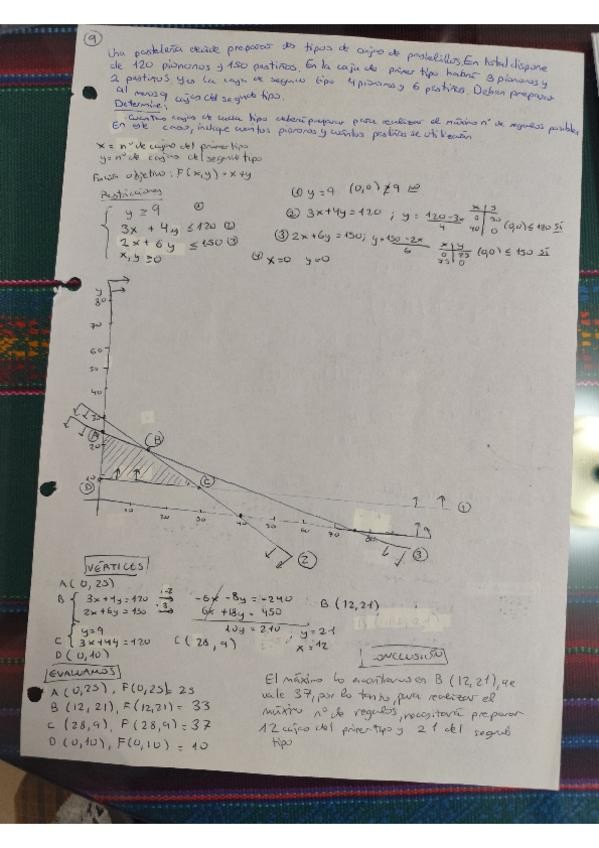 9
Una pastelería decide preparar dos tipos de cajas de pastelillos. En total dispone
de 120 piononos y 150 pestiños. En la caja de primer tipo habrá 3 piononos y
2 pestiños, y en la caja de segundo tipo 4 piononos y 6 pestiños. Deben preparar
al menos 9 cajas del segundo tipo.
Determine:
Cuántas cajas de cada tipo deberá preparar para realizar el máximo nº de regalos posibles
En este caso, indique cuántos piononos y cuántos pestiños se utilizarán
x = nº de cajas del primer tipo
y = nº de cajas del segundo tipo
Función objetivo: F(x,y) = x+y
Restricciones
y ≥ 9 ①
3x + 4y ≤ 120 ②
2x + 6y ≤ 150 ③
x, y ≥ 0
① y = 9 (0,0) ≱ 9
② 3x+4y = 120 ; y = 120-3x / 4 x y 0 30 40 0 (0,0) ≤ 120 Sí
③ 2x+6y = 150; y = 150-2x / 6 x y 0 25 75 0 (0,0) ≤ 150 Sí
④ x=0 y=0
y
80
70
60
50
40
30
A
20
B
10
C
D
①
10 20 30 40 50 60 70 80
②
③
VÉRTICES
A (0,25)
B 3x+4y=120 -6x -8y = -240 B (12,21)
2x+6y=150 ·3 6x + 18y = 450
10y = 210 ; y = 21
x = 12
C y=9
3x+4y=120 C (28,9)
D (0,10)
EVALUAMOS
A (0,25), F(0,25) = 25
B (12,21), F(12,21) = 33
C (28,9), F(28,9) = 37
D (0,10), F(0,10) = 10
CONCLUSIÓN
El máximo lo encontramos en B (12,21), que
vale 37, por lo tanto, para realizar el
máximo nº de regalos, necesitaría preparar
12 cajas del primer tipo y 21 del segundo
tipo